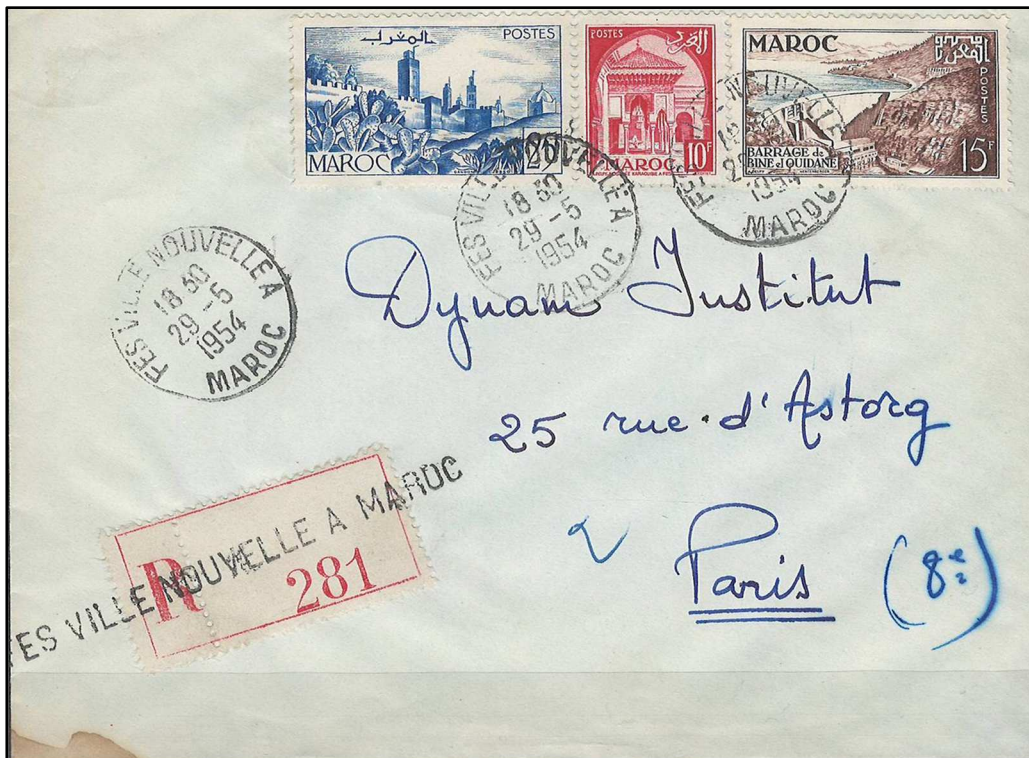 المغرب
POSTES
MAROC
POSTES
المغرب
10F
MAROC
MAROC
المغرب
POSTES
BARRAGE de
BINE el OUIDANE
15F
FES VILLE NOUVELLE A
18 30
29 -5
1954
MAROC
FES VILLE NOUVELLE A
18 30
29 -5
1954
MAROC
FES VILLE NOUVELLE A
18 30
29 -5
1954
MAROC
Dynam Institut
25 rue d'Astorg
Paris (8e)
R
281
FES VILLE NOUVELLE A MAROC